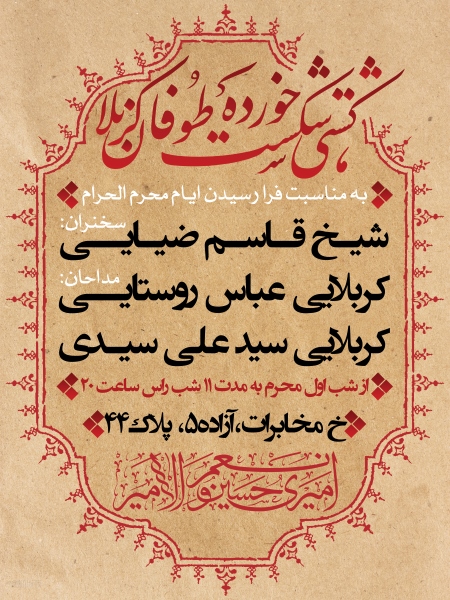 کشتی شکست خورده طوفان کربلا
به مناسبت فرا رسیدن ایام محرم الحرام
سخنران:
شیخ قاسم ضیایی
مداحان:
کربلایی عباس روستایی
کربلایی سید علی سیدی
از شب اول محرم به مدت ۱۱ شب راس ساعت ۲۰
خ مخابرات، آزاده۵، پلاک۴۴
امیری حسین و نعم الامیر